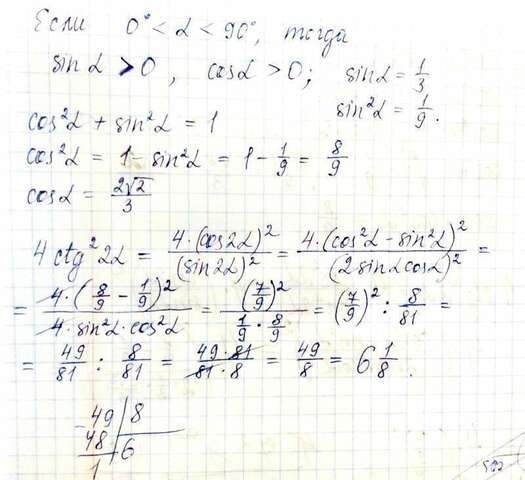 Если 0° < α < 90°, тогда
sin α > 0, cos α > 0; sin α = 1/3
sin²α = 1/9.
cos²α + sin²α = 1
cos²α = 1 - sin²α = 1 - 1/9 = 8/9
cos α = 2√2/3
4 ctg²2α = 4·(cos 2α)²/(sin 2α)² = 4·(cos²α - sin²α)²/(2 sin α cos α)² =
= 4·(8/9 - 1/9)²/4·sin²α·cos²α = (7/9)²/(1/9 · 8/9) = (7/9)² : 8/81 =
= 49/81 : 8/81 = 49·81/81·8 = 49/8 = 6 1/8.
- 49 | 8
48 | 6
1